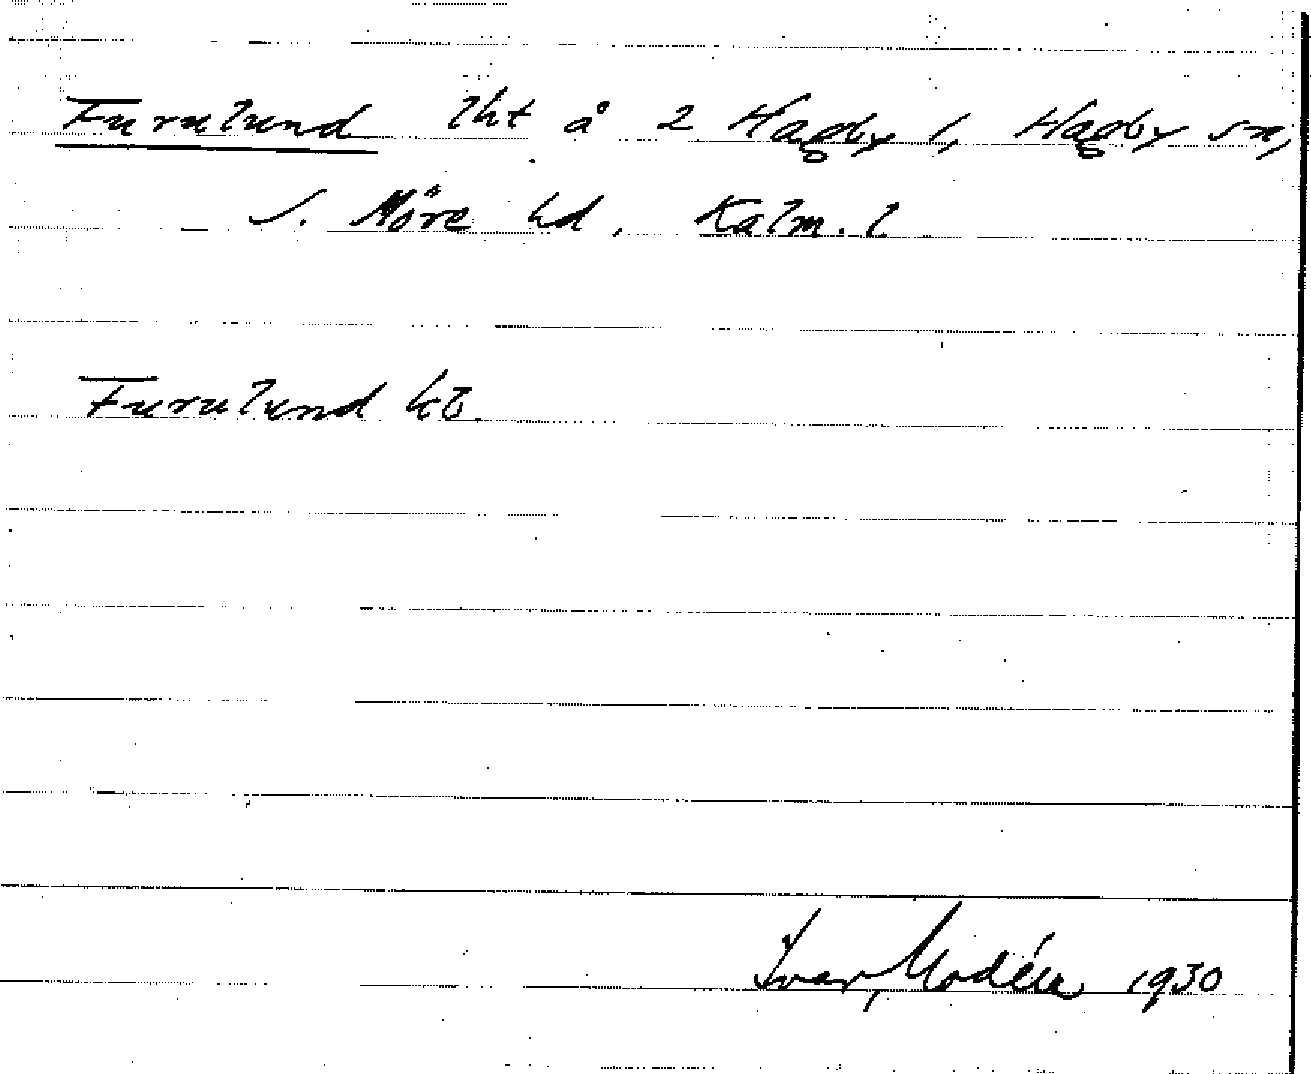 Furulund lht å 2 Hagby 1, Hagby sn,
S. Möre hd, Kalm. l.
Furulund kb.
Ivar Modéer 1930